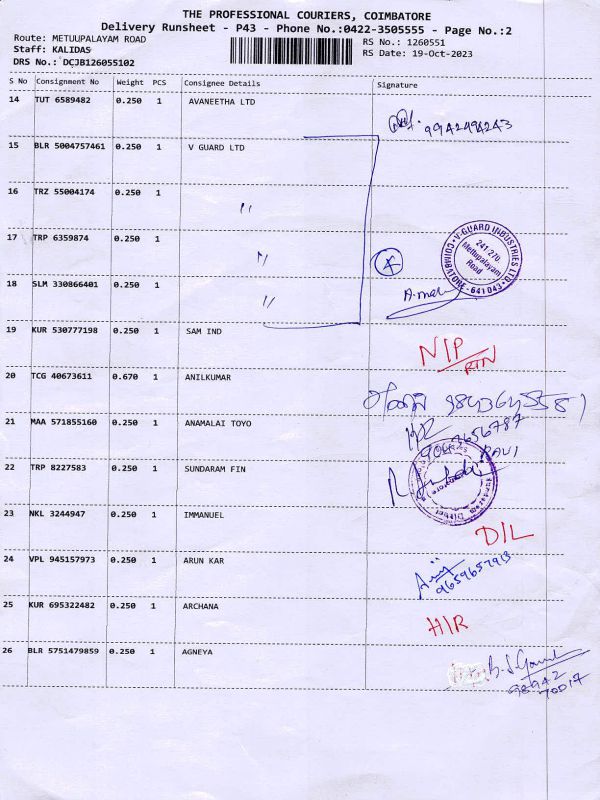 THE PROFESSIONAL COURIERS, COIMBATORE
Delivery Runsheet - P43 - Phone No.:0422-3505555 - Page No.:2
Route: METUUPALAYAM ROAD
RS No.: 1260551
Staff: KALIDAS
RS Date: 19-Oct-2023
DRS No.: DCJB126055102
S No Consignment No Weight PCS Consignee Details Signature
14 TUT 6589482 0.250 1 AVANEETHA LTD
9942494243
15 BLR 5004757461 0.250 1 V GUARD LTD
16 TRZ 55004174 0.250 1 "
17 TRP 6359874 0.250 1 "
V-GUARD INDUSTRIES LTD.
241,270
Mettupalayam
Road
COIMBATORE-641043
18 SLM 330866401 0.250 1 "
19 KUR 530777198 0.250 1 SAM IND
N/P
RTN
20 TCG 40673611 0.670 1 ANILKUMAR
21 MAA 571855160 0.250 1 ANAMALAI TOYO
RAVI
22 TRP 8227583 0.250 1 SUNDARAM FIN
23 NKL 3244947 0.250 1 IMMANUEL
D/L
24 VPL 945157973 0.250 1 ARUN KAR
25 KUR 695322482 0.250 1 ARCHANA
H/R
26 BLR 5751479859 0.250 1 AGNEYA
98942
70017